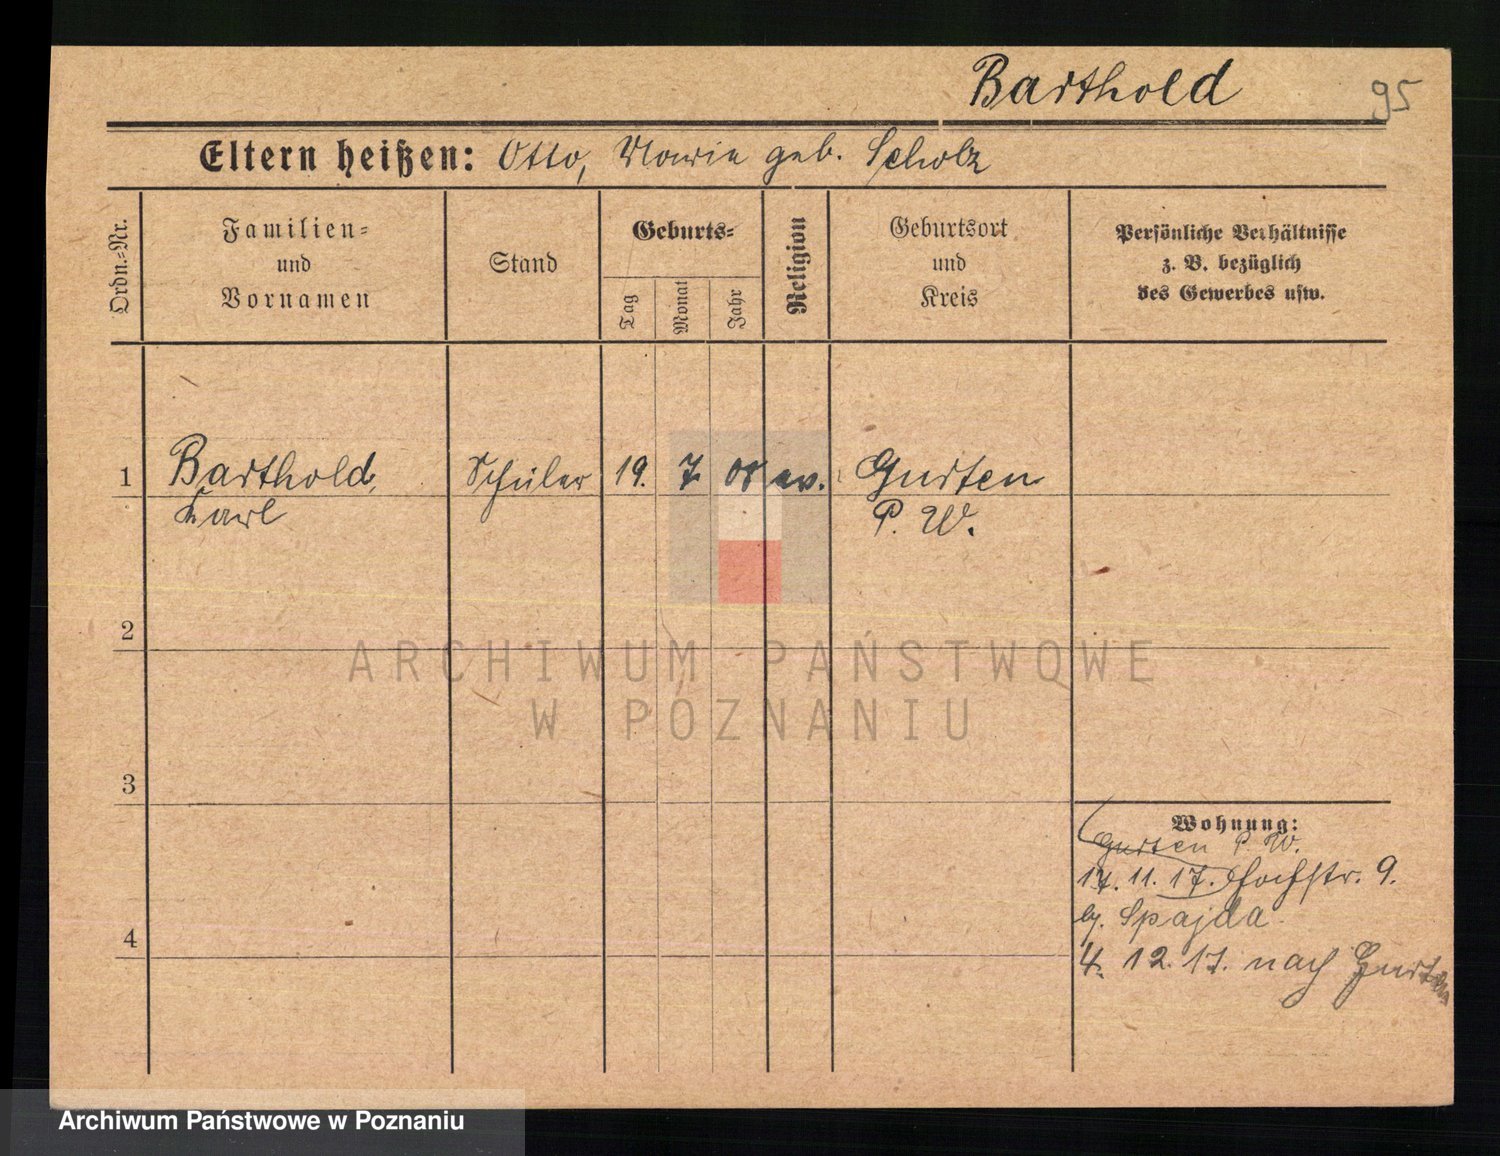 Barthold 95
Eltern heißen: Otto, Marie geb. Scholz
Ordn.=Nr.
Familien=
und
Vornamen
Stand
Geburts=
Tag
Monat
Jahr
Religion
Geburtsort
und
Kreis
Persönliche Verhältnisse
z. B. bezüglich
des Gewerbes usw.
1 Barthold, Schüler 19. 7 08 ev. Gurten
Karl P. W.
2
3
4
Wohnung:
Gurten P. W.
17. 11. 17. Hochstr. 9.
by. Spajda
4. 12. 17. nach Gurten
ARCHIWUM PAŃSTWOWE
W POZNANIU
Archiwum Państwowe w Poznaniu